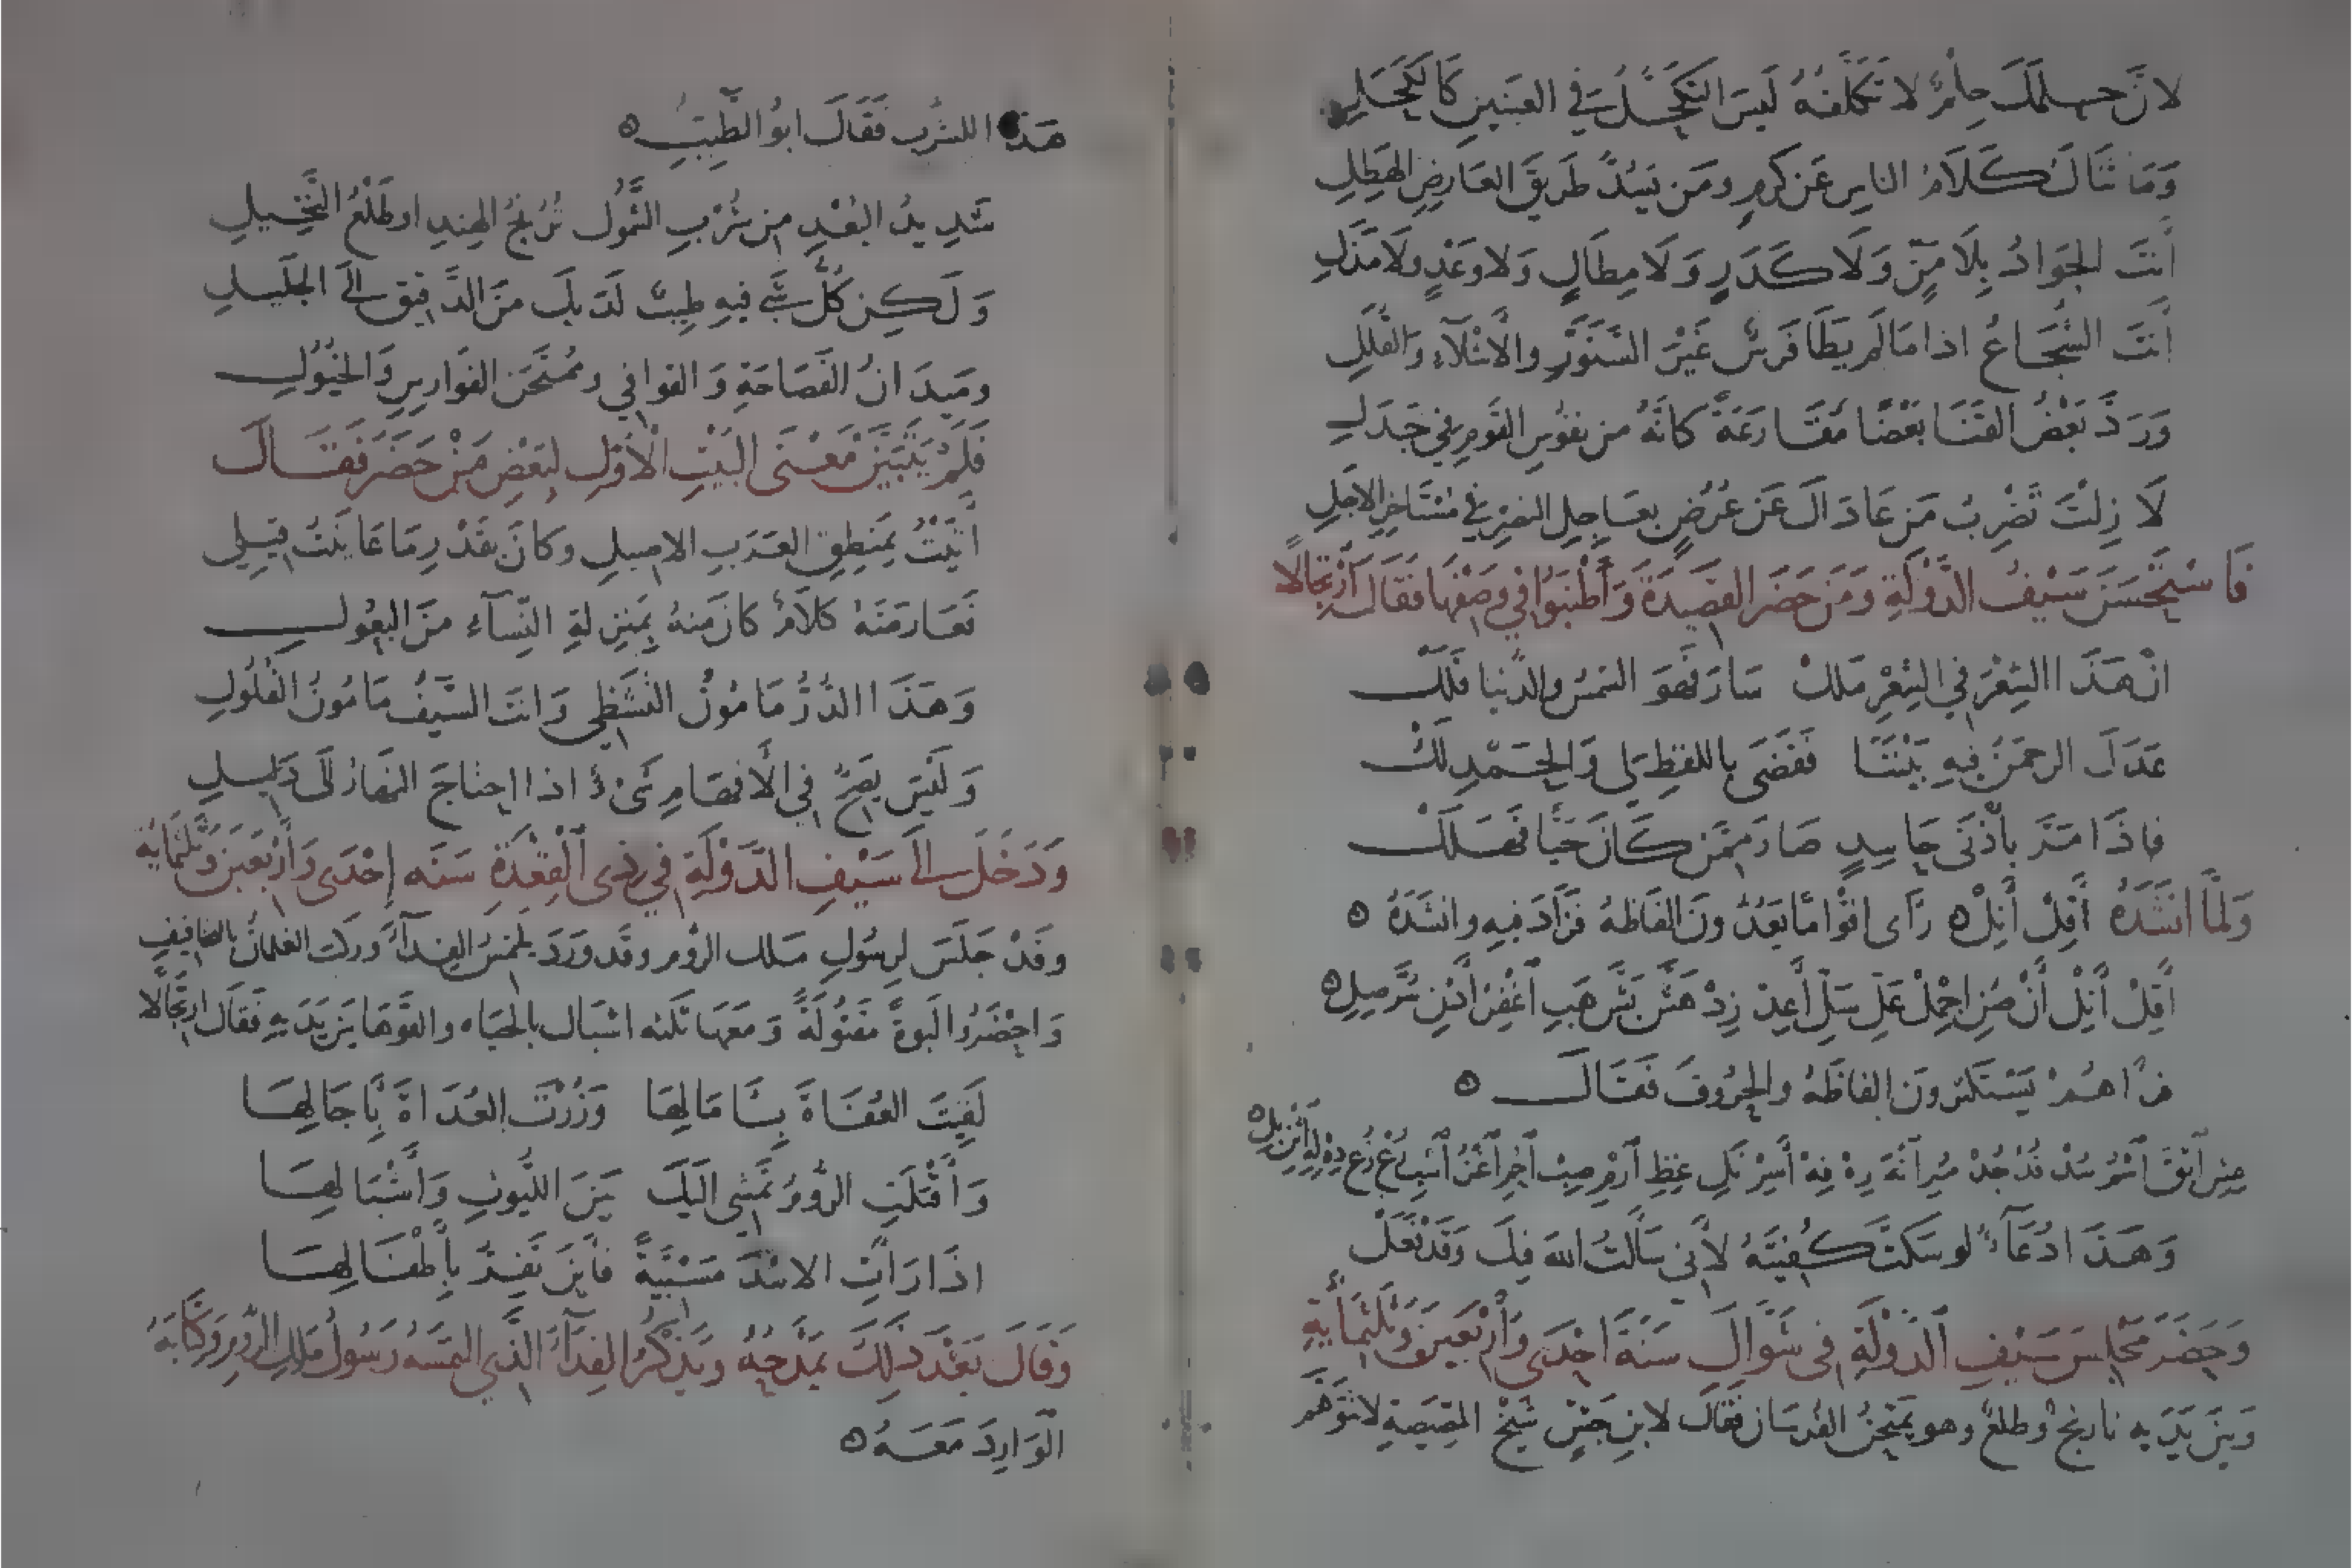 لانَّ حلمَكَ حِلمٌ لا تَكَلَّفُهُ لَيسَ التَكَحُّلُ في العَينَينِ كَالكَحَلِ
وَمَا ثَنَاكَ كَلَامُ الناسِ عَن كَرمٍ ومَن يَسُدُّ طَريقَ العَارضِ الهَطِلِ
أَنتَ الجَوَادُ بِلَا مَنٍّ وَلَا كَدَرٍ وَلَا مِطَالٍ وَلا وَعْدٍ ولَا مَذَلِ
أَنتَ الشُّجَاعُ اذا مَا لَم يَطَأ فَرَسٌ غَيْرَ السَّنَوَّرِ والأَشْلَآءِ وَالقُلَلِ
وَرَدَّ بَعْضُ القَنَا بَعْضًا مُقَارَعَةً كانَّهُ من نفوُسِ القَومِ في جَدَلِ
لَا زِلْتَ تَضْرِبُ مَن عَادَاكَ عَن عُرُضٍ بعَاجِلِ النصرِ في مُسْتَاخرِ الاجَلِ
فَاسْتَحْسَنَ سَيْفُ الدَّوْلَةِ وَمَن حَضَرَ القَصِيدَةَ وَأَطْنَبُوا في وَصْفِهَا فَقَالَ ارْتِجَالًا
انّ هَذَا الشِعْرَ في الشِعْرِ مَلَكْ سَارَ فَهوَ الشمسُ والدُّنيا فَلَكْ
عَدَلَ الرحمَنُ فيهِ بَيْنَنَا فَقَضَى باللفظِ لي وَالحَمْدِ لَكْ
فاذَا مَرَّ بأُذْنَى حَاسِدٍ صَارَ مِمَّن كَانَ حَيًّا فَهَلَكْ
وَلَمَّا انْشَدَهُ أَقِلْ أَنِلْ ه رَأى اقْوَامًا يَعُدُّونَ الفَاظهُ فَزَادَ فيهِ وانشَدَهُ ه
أَقِلْ أَنِلْ أُنْ صُنِ احْمِلْ عَلِّ سَلِّ أَعِدْ زِدْ هَشَّ بَشَّ هَبِ اغْفِرْ ادْنِ سُرَّ صِلِ ه
فرَاهُمْ يَسْتَكثرونَ الفاظَهُ والحُرُوفَ فَقَالَ ه
عِشِ ابْقَ اسْمُ سُدْ قُدْ جُدْ مُرِ انْهَ رِهْ فِهْ اسْرِ نَلِ غِظِ ارْمِ صِبْ احْمِ اغْزُ اسْبِ رُعْ زَعْ دِهْ لِهِ اثْنِ بِلِ ه
وَهَذَا دُعَآءٌ لو سَكتَّ كُفيتَهُ لأَني سَأَلتُ اللهَ فيكَ وَقَدْ فَعَلْ
وَحَضَرَ مَجْلِسَ سَيْفِ الدَّوْلَةِ في شَوَّالَ سَنَةَ احْدَى وَأَرْبَعِينَ وَثَلَثِمَايَةِ
وَبَينَ يَدَيه نارنج وطلعٌ وهو يَمتَحنُ الفُرسَان فَقَالَ لابنِ جَشٍ شَيْخ المصِّيصَةِ لا تتوَهَّم
هَذَا للشرب فَقَالَ ابوُ الطَّيِّبِ ه
شَدِيدُ البُعْدِ من شُرْبِ الشَّمُولِ تُرُنجُ الهندِ او طَلْعُ النَّخِيلِ
وَلَكِن كُلُّ شَيءٍ فيهِ طِيبٌ لَدَيكَ منَ الدَّقيقِ الَى الجَلَيلِ
ومَيدَانُ الفَصَاحَةِ وَالقوافي ومُمْتَحَن الفَوارسِ وَالخيُولِ
فَلَمْ يَتَبَيَّنْ مَعْنَى البَيْتِ الأَوَّلِ لبَعْضِ مَنْ حَضَرَ فَقَالَ
أَتَيْتُ بمَنطِقِ العَرَبِ الاصيلِ وكَانَ بقَدْرِ مَا عَايَنتُ قِيلي
فَعَارَضَهُ كَلَامٌ كانَ منهُ بمَنزِلَةِ النِّسَآءِ منَ البعُولِ
وَهَذَا الدُّرُّ مَامُونُ التشَظِّي وَانتَ السَّيفُ مَامُونُ الفُلُولِ
وَلَيسَ يصِحُّ في الأَفهَامِ شَيءٌ اذا احتاجَ النهَارُ الَى دَليلِ
وَدَخَلَ الَى سَيْفِ الدَّوْلَةِ في ذي القِعْدَةِ سَنَه إحْدَى وَأَرْبَعينَ وَثَلثمايَة
وقَدْ جَلَسَ لرسُولِ مَلك الرُّوم وقَد وَرَدَ يلتمسُ الفِدَآءَ وَركبَ الغلمانُ بالتجافيفِ
وَاحْضَرُوا لَبوةً مَقتُولَةً وَمَعهَا ثلثه اشبَال بالحيَاه والقَوهَا بَين يَدَيهِ فَقَالَ ارتجَالًا
لَقِيتَ العُفَاةَ بِآمَالِهَا وَزُرْتَ العُدَاةَ بآجَالِهَا
وَأَقْبَلَتِ الرُّومُ تَمْشي الَيكَ بَينَ اللُّيوثِ وَأَشْبَالِهَا
اذَا رَأَتِ الاسْدَ مَسْبيَّةً فَأَينَ تَفِرُّ بأَطْفَالِهَا
وَقَالَ بَعْدَ ذَلِكَ يَمْدَحُهُ وَيَذْكُرُ الفِدَآءَ الذَّي التَمَسَهُ رَسُولُ مَلِكِ الرُّومِ وَكِتَابَهُ
الوَارِدَ مَعَهُ ه